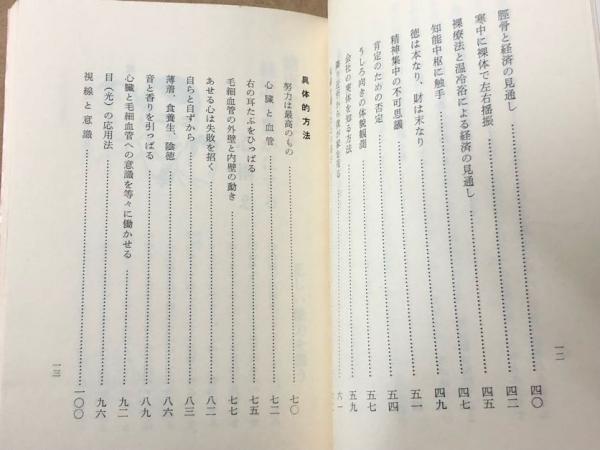 脛骨と経済の見通し……四〇
寒中に裸体で左右揺振……四二
裸療法と温冷浴による経済の見通し……四五
知能中枢に触手……四九
徳は本なり、財は末なり……五一
精神集中の不可思議……五四
肯定のための否定……五七
うしろ向きの体験観測……五九
会社の実体を知る方法……六一
一二
具体的方法
努力は最高のもの……七〇
心臓と血管……七二
右の耳たぶをひっぱる……七五
毛細血管の外壁と内壁の動き……七七
あせる心は失敗を招く……八二
自らと自ずから……八三
薄着、食養生、陰徳……八六
音と香りを引っぱる……八九
心臓と毛細血管への意識を等々に働かせる……九二
目（光）の応用法……九六
視線と意識……一〇〇
一三